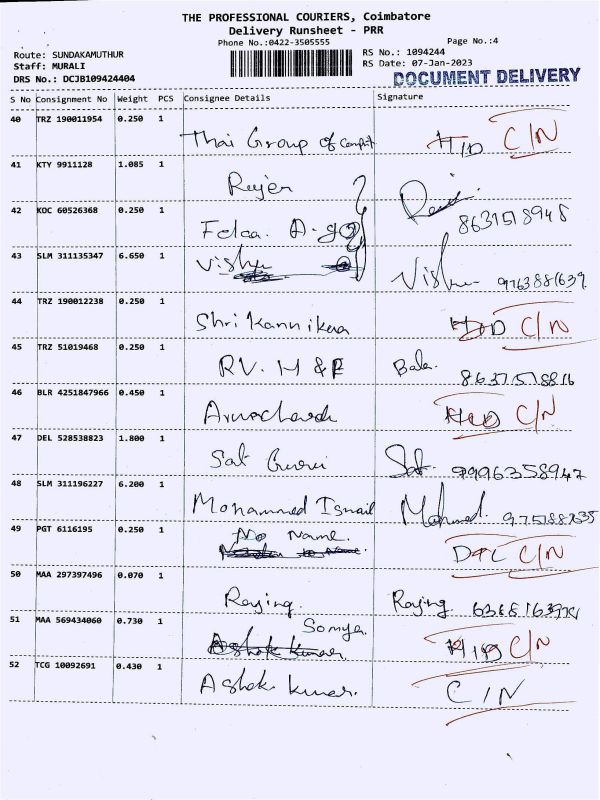 THE PROFESSIONAL COURIERS, Coimbatore
Delivery Runsheet - PRR
Phone No.:0422-3505555
Page No.:4
Route: SUNDAKAMUTHUR
Staff: MURALI
DRS No.: DCJB109424404
RS No.: 1094244
RS Date: 07-Jan-2023
DOCUMENT DELIVERY
S No Consignment No Weight PCS Consignee Details Signature
40 TRZ 190011954 0.250 1
Thai Group of C/N
41 KTY 9911128 1.085 1
Rajer
8631518948
42 KOC 60526368 0.250 1
43 SLM 311135347 6.650 1
Vishu Vishu 9763881639
44 TRZ 190012238 0.250 1
Shri Kannikaa C/N
45 TRZ 51019468 0.250 1
RV. H & F Bala. 8637518816
46 BLR 4251847966 0.450 1
C/N
47 DEL 528538823 1.800 1
Sat 9996358947
48 SLM 311196227 6.200 1
Mohammed Ismail Mohmed.
49 PGT 6116195 0.250 1
No Name. DTL C/N
50 MAA 297397496 0.070 1
Rajing. Rajing
51 MAA 569434060 0.730 1
Somya.
Ashok kumar C/N
52 TCG 10092691 0.430 1
Ashok kumar. C/N